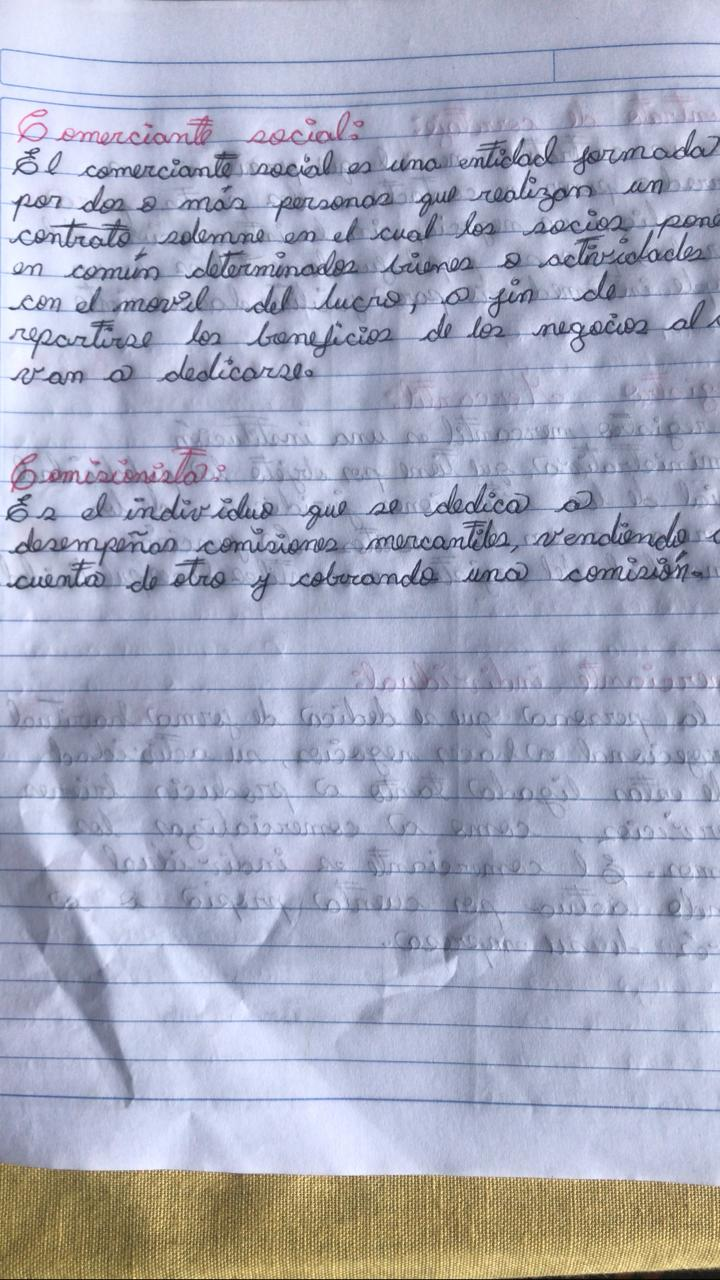 Comerciante social:
El comerciante social es una entidad formada
por dos o más personas que realizan un
contrato solemne en el cual los socios pone
en común determinados bienes o actividades
con el movil del lucro, a fin de
repartirse los beneficios de los negocios al
van a dedicarse.
Comisionista:
Es el individuo que se dedica a
desempeñar comisiones mercantiles, vendiendo
cuenta de otro y cobrando una comisión.